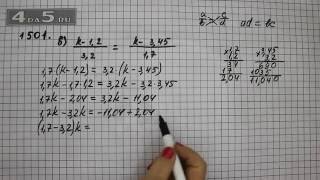 4APDS.RU
1501. б) k-1,2/3,2 = k-3,45/1,7
a/b c/d ad = bc
1,7(k-1,2) = 3,2·(k-3,45)
1,7k-1,7·1,2 = 3,2k-3,2·3,45
1,7k-2,04 = 3,2k-11,04
1,7k-3,2k = -11,04+2,04
(1,7-3,2)k =
×1,7
1,2
34
17
2,04
×3,45
3,2
690
1035
11,040